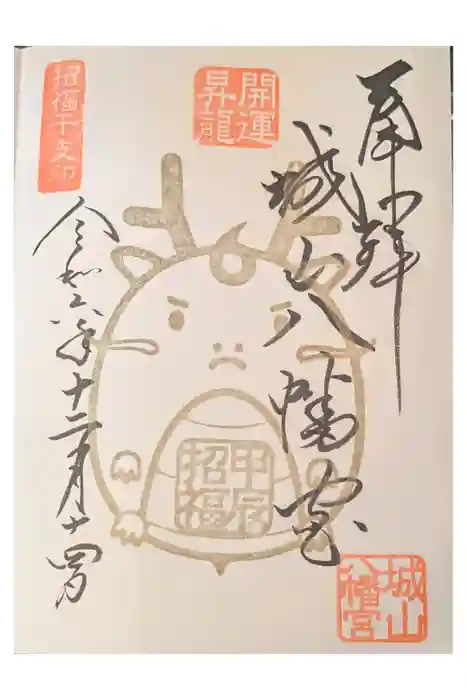 奉拝
城山八幡宮
開運
昇龍
甲辰
招福
招福干支印
令和六年十二月十四日
城山
八幡宮